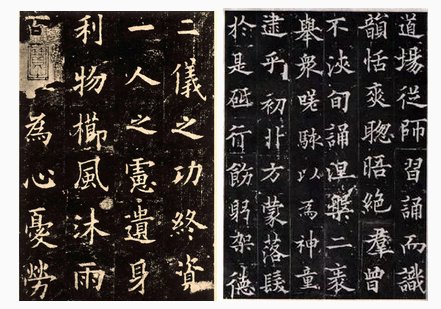 道場從師習誦而識
韻恬爽聦晤絕羣曾
不浹旬誦涅槃二袠
舉衆嗟駭以為神童
逮乎初丱方蒙落髮
於是砥行飭躬架德
二儀之功終資
一人之憲遺身
利物櫛風沐雨
百 為心憂勞